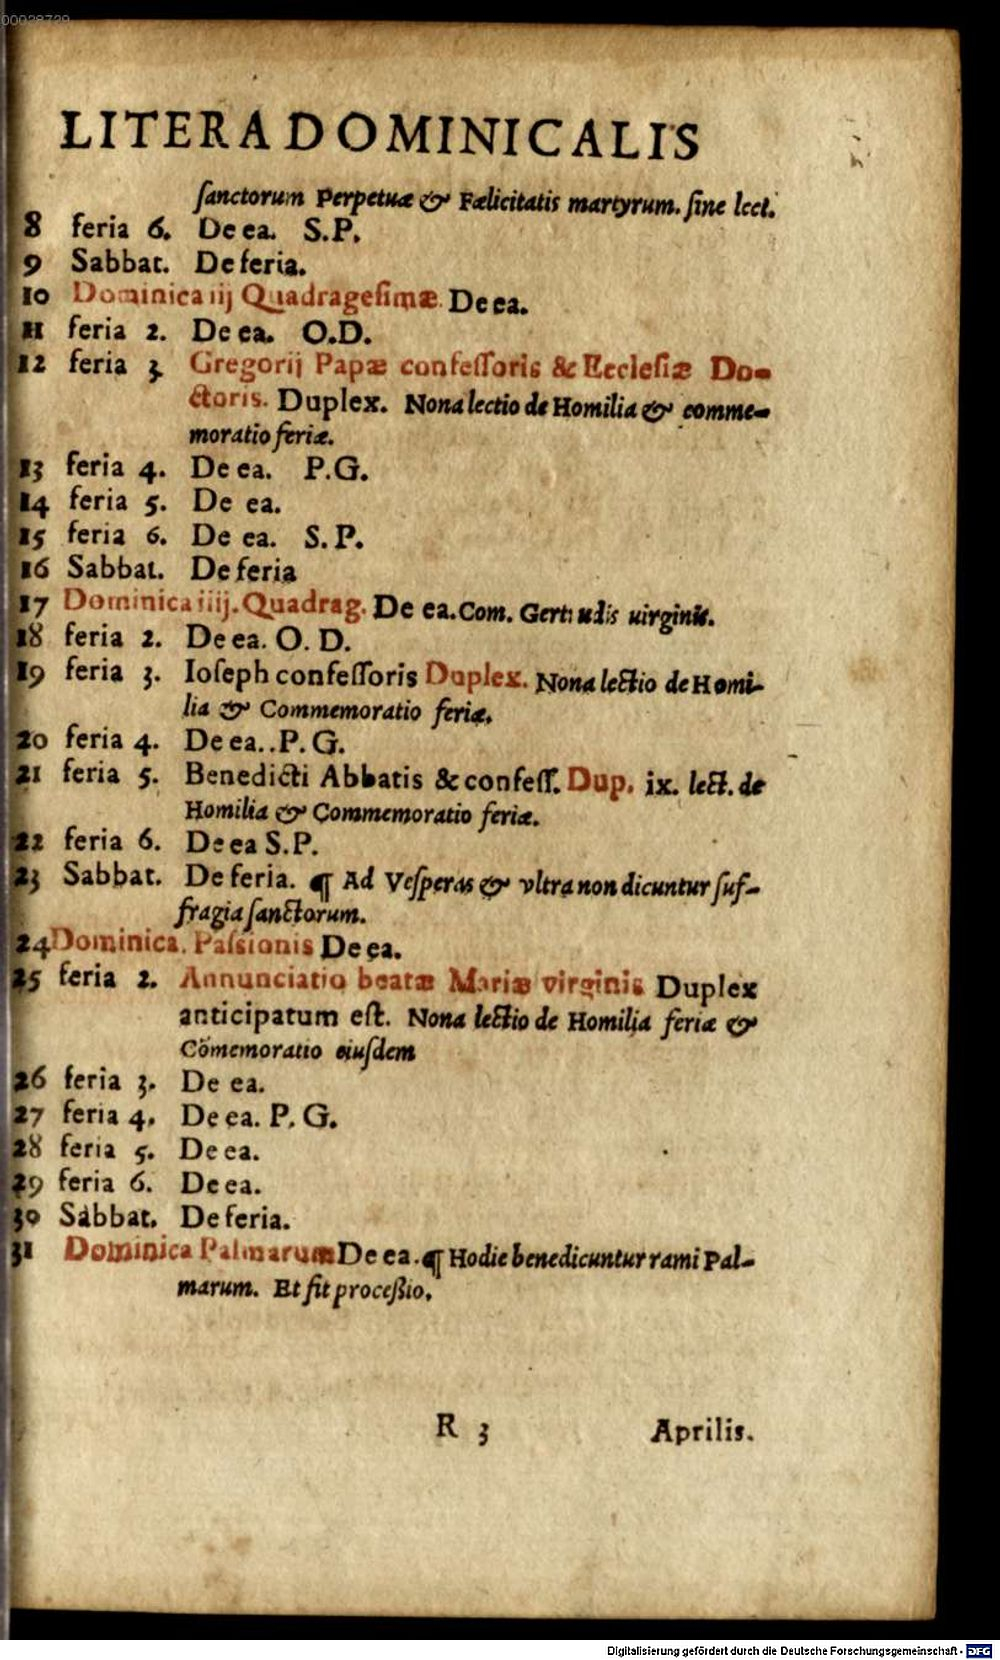 00028729
LITERA DOMINICALIS
sanctorum Perpetuæ & Fælicitatis martyrum. sine lect.
8 feria 6. De ea. S.P.
9 Sabbat. De feria.
10 Dominica iij Quadragesimæ. De ea.
11 feria 2. De ea. O.D.
12 feria 3 Gregorij Papæ confessoris & Ecclesiæ Do-
ctoris. Duplex. Nona lectio de Homilia & comme-
moratio feriæ.
13 feria 4. De ea. P.G.
14 feria 5. De ea.
15 feria 6. De ea. S.P.
16 Sabbat. De feria
17 Dominica iiij. Quadrag. De ea. Com. Gertrudis uirginis.
18 feria 2. De ea. O. D.
19 feria 3. Ioseph confessoris Duplex. Nona lectio de Homi-
lia & Commemoratio feriæ.
20 feria 4. De ea.. P. G.
21 feria 5. Benedicti Abbatis & confess. Dup. ix. lect. de
Homilia & Commemoratio feriæ.
22 feria 6. De ea S.P.
23 Sabbat. De feria. ¶ Ad Vesperas & vltra non dicuntur suf-
fragia sanctorum.
24 Dominica. Passionis De ea.
25 feria 2. Annunciatio beatæ Mariæ virginis Duplex
anticipatum est. Nona lectio de Homilia feriæ &
Cōmemoratio eiusdem
26 feria 3. De ea.
27 feria 4. De ea. P. G.
28 feria 5. De ea.
29 feria 6. De ea.
30 Sabbat. De feria.
31 Dominica Palmarum De ea. ¶ Hodie benedicuntur rami Pal-
marum. Et fit processio.
R 3 Aprilis.
Digitalisierung gefördert durch die Deutsche Forschungsgemeinschaft - DFG